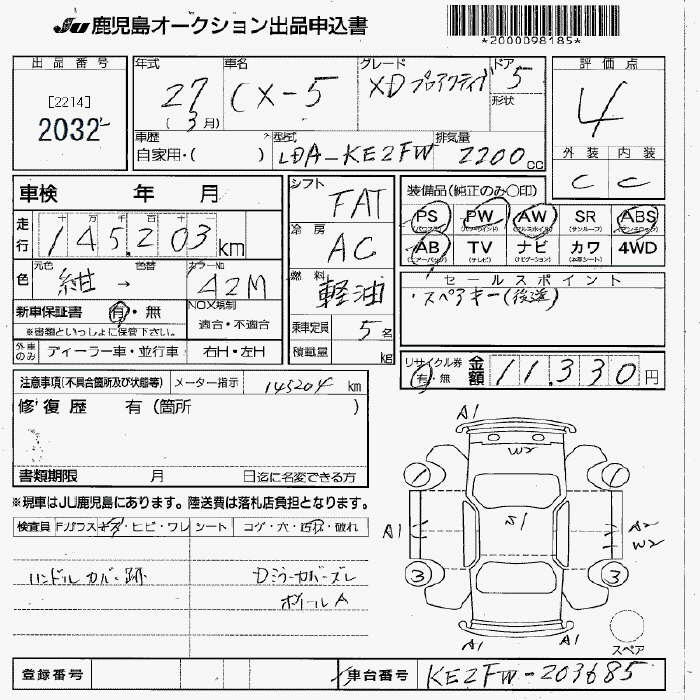 JU 鹿児島オークション出品申込書
*2000098185*
出品番号
[2214]
2032
年式 27 (3月)
車名 CX-5
グレード XDプロアクティブ
ドア 5
形状
車歴 自家用・( )
型式 LDA-KE2FW
排気量 2200 CC
評価点
4
外装 内装
C C
車検 年 月
走行 十万千百十 145,203 km
元色 色替 カラーNo
色 紺 → 42M
新車保証書 有・無
※書類といっしょに保管下さい。
NOX規制 適合・不適合
外車のみ ディーラー車・並行車 右H・左H
シフト FAT
冷房 AC
燃料 軽油
乗車定員 5名
積載量 kg
装備品(純正のみ○印)
PS PW AW SR ABS
(パワステ) (パワーウインド) (アルミホイル) (サンルーフ) (アンチロック)
AB TV ナビ カワ 4WD
(エアーバック) (テレビ) (ナビゲーション) (本革シート)
セールスポイント
・スペアキー(後送)
リサイクル券 有・無 金額 11,330円
注意事項(不具合箇所及び状態等) メーター指示 145204 km
修復歴 有(箇所 )
書類期限 月 日迄に名変できる方
※現車はJU鹿児島にあります。陸送費は落札店負担となります。
検査員 Fガラス キズ・ヒビ・ワレ シート コゲ・穴・汚れ・破れ
ハンドルカバー跡 Dミラーカバーズレ
ホイールA
A1
W2
1 1
A1 S1 A2
W2
3 3
A1 A1
スペア
登録番号 車台番号 KE2FW-203685